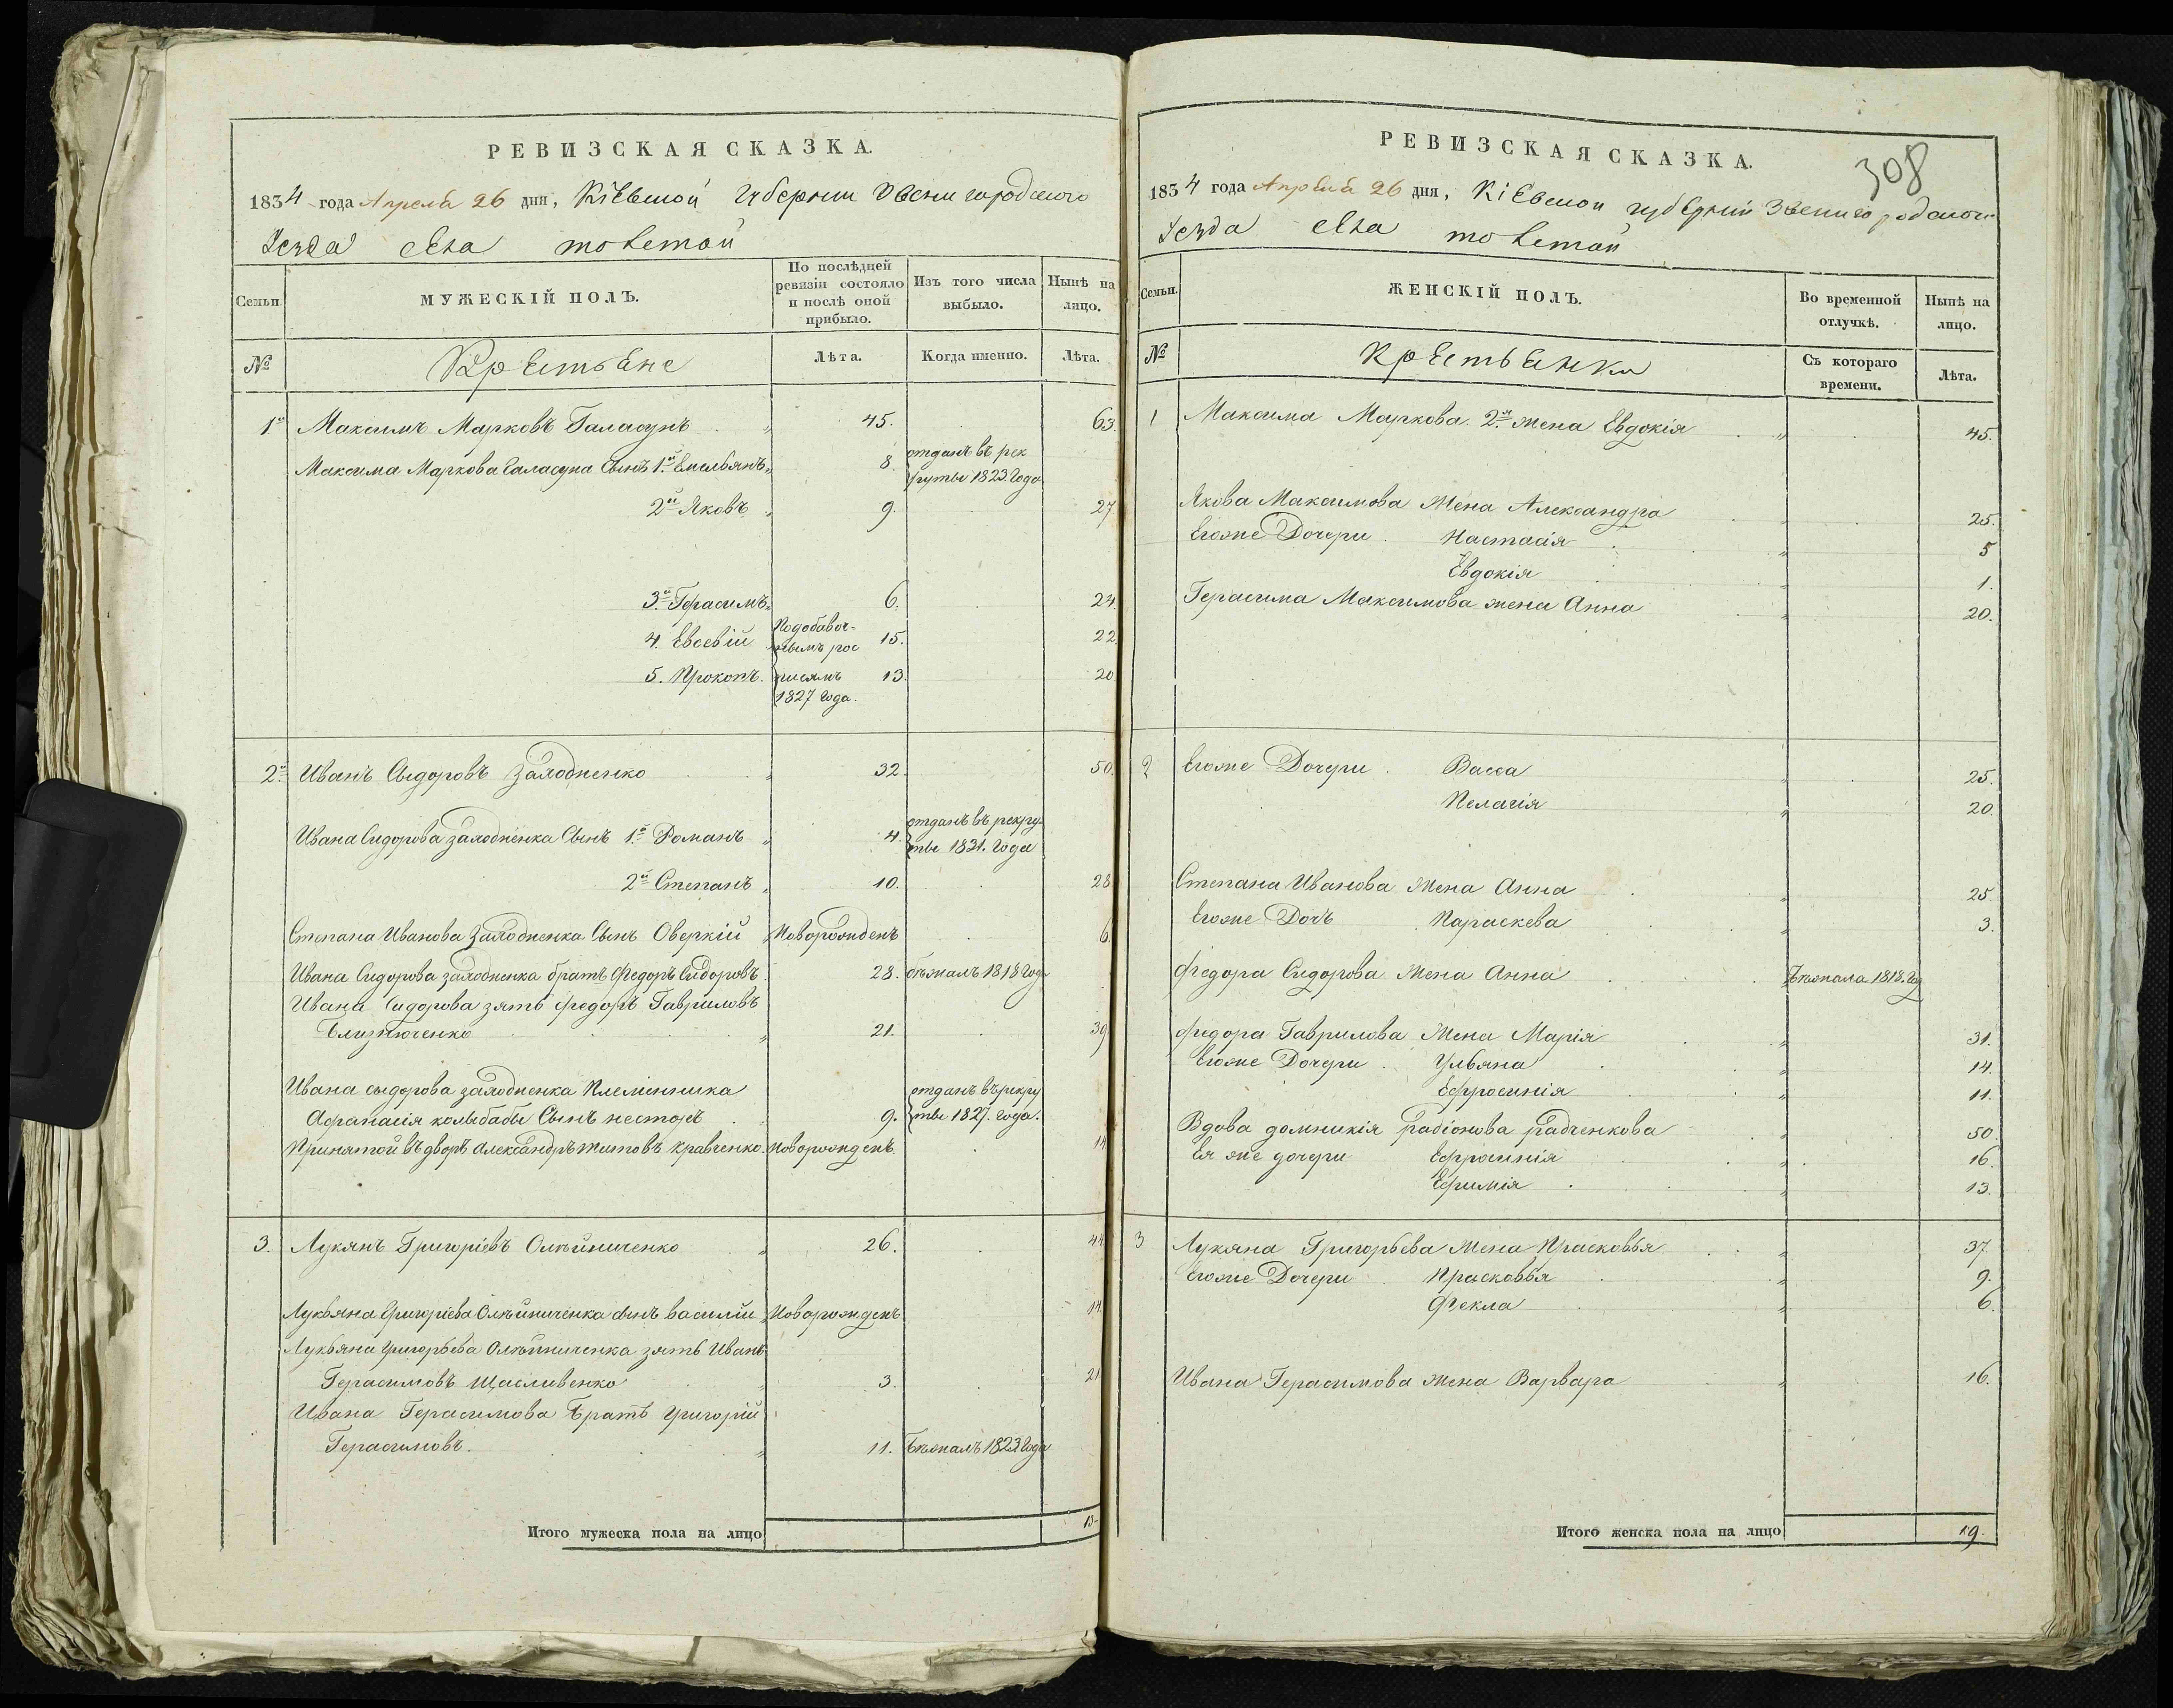 РЕВИЗСКАЯ СКАЗКА.
1834 года Апреля 26 дня, Кіевской Губернии Звенигородского
Уезда села толстой
Семьи.
МУЖЕСКІЙ ПОЛЪ.
По послѣдней ревизіи состояло и послѣ оной прибыло.
Изъ того числа выбыло.
Нынѣ на лицо.
№
Крестьяне
Лѣта.
Когда именно.
Лѣта.
1й Максимъ Марковъ Галасунъ „ 45. 63.
Максима Маркова Галасуна Сынъ 1й Емельянъ „ 8. отданъ въ рек
руты 1823 Года
2й Яковъ „ 9. 27
3й Герасимъ „ 6. 24
4. Евсевій Подобавоч-
нымъ рос 15. 22
5. Прокопъ. писямъ 13. 20
1827 Года.
2й Иванъ Сыдоровъ Залодненко „ 32. 50.
Ивана Сидорова залодненка Сынъ 1й Романъ „ 4. отданъ въ рекру
ты 1831. Года
2й Степанъ „ 10. 28
Степана Иванова Залодненка Сынъ Оверкій „ Новорожденъ 6.
Ивана Сидорова залодненка братъ Федоръ Сидоровъ 28. бѣжалъ 1818 Года
Ивана Сидорова зять Федоръ Гавриловъ
Близнюченко „ 21. 39
Ивана сыдорова залодненка Племінника
Афанасія колыбабы Сынъ несторъ 9. отданъ въ рекру
ты 1827. года.
Принятой въ дворъ Александръ титовъ кравченко. Новорожденъ 14
3. Лукянъ Григоріевъ Олѣйниченко „ 26. 44
Лукьяна Григоріева Олѣйниченка сынъ василій „ Новорожденъ 14
Лукьяна Григорьева Олѣйниченка зять Иванъ
Герасимовъ Щасливенко „ 3. 21
Ивана Герасимова Братъ Григорій
Герасимовъ. „ 11. Бѣжалъ 1823 Года
Итого мужеска пола на лицо 13.
РЕВИЗСКАЯ СКАЗКА.
308
1834 года Апреля 26 дня, Кіевской губерній Звенигородского
Уезда села толстой
Семьи.
ЖЕНСКІЙ ПОЛЪ.
Во временной отлучкѣ.
Нынѣ на лицо.
№
Крестьянки
Съ котораго времени.
Лѣта.
1 Максима Маркова. 2я жена Евдокія „ 45.
Якова Максимова Жена Александра 25.
Егоже Дочери Настасія „ 5
Евдокія „ 1.
Герасима Максимова жена Анна „ 20.
2 Егоже Дочери Васса „ 25.
Пелагія „ 20.
Степана Иванова Жена Анна „ 25.
Егоже Дочь Параскева „ 3.
Федора Сидорова Жена Анна Бѣжала 1818. Год
Федора Гаврилова Жена Марія „ 31.
Егоже Дочери Ульяна „ 14.
Ефросинія „ 11.
Вдова домникія радіонова радченкова „ 50.
Ея же дочери Ефросинія „ 16.
Ефимія „ 13.
3 Лукяна Григорьева Жена Прасковья „ 37.
Егоже Дочери Прасковья „ 9.
Фекла „ 6.
Ивана Герасимова жена Варвара „ 16.
Итого женска пола на лицо 19.